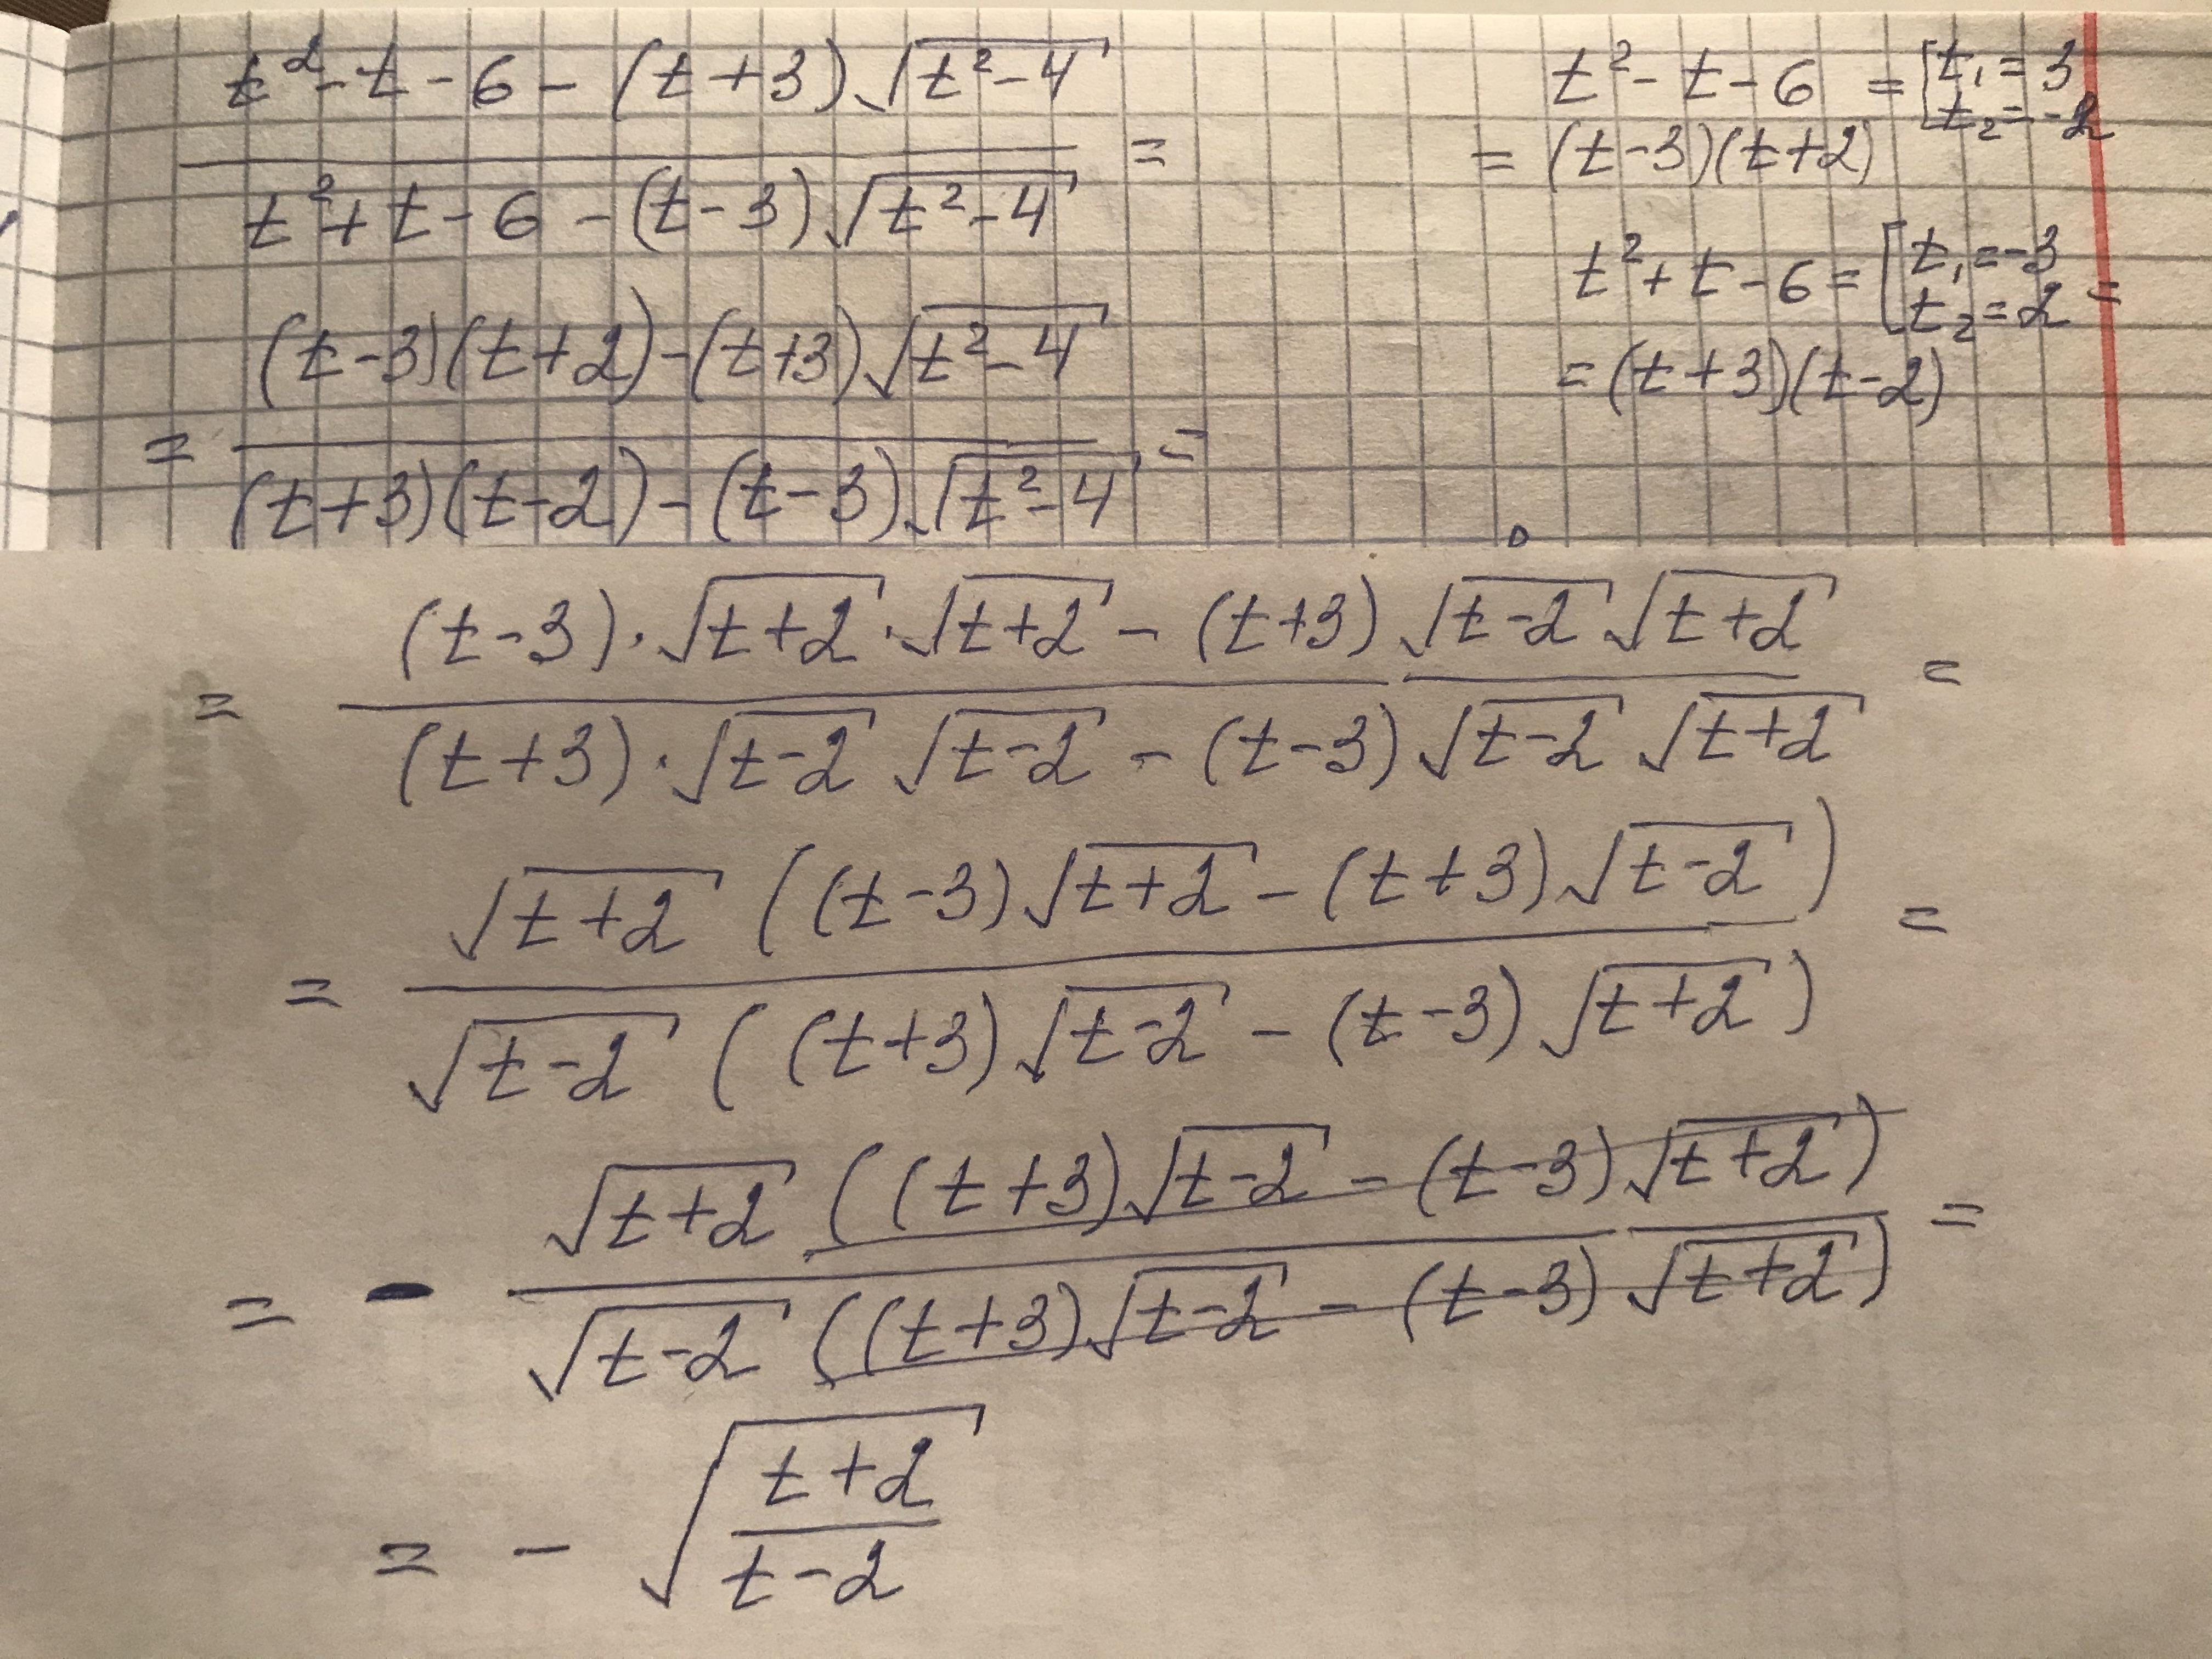 t² - t - 6 - (t + 3)√(t² - 4)
=
t² + t - 6 - (t - 3)√(t² - 4)
= (t - 3)(t + 2) - (t + 3)√(t² - 4)
=
(t + 3)(t - 2) - (t - 3)√(t² - 4)
t² - t - 6 = [t₁ = 3
t₂ = -2
= (t - 3)(t + 2)
t² + t - 6 = [t₁ = -3
t₂ = 2 =
= (t + 3)(t - 2)
= (t - 3) · √(t + 2) · √(t + 2) - (t + 3) √(t - 2) √(t + 2)
=
(t + 3) · √(t - 2) √(t - 2) - (t - 3) √(t - 2) √(t + 2)
= √(t + 2) ((t - 3) √(t + 2) - (t + 3) √(t - 2))
=
√(t - 2) ((t + 3) √(t - 2) - (t - 3) √(t + 2))
= - √(t + 2) ((t + 3) √(t - 2) - (t - 3) √(t + 2))
=
√(t - 2) ((t + 3) √(t - 2) - (t - 3) √(t + 2))
= - √(t + 2
t - 2)